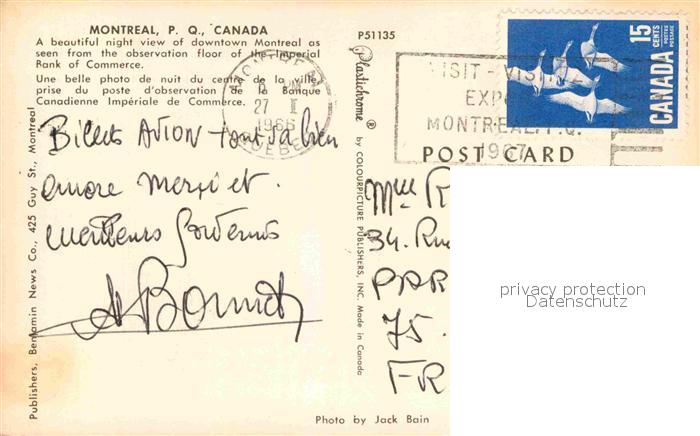 MONTREAL, P. Q., CANADA
A beautiful night view of downtown Montreal as
seen from the observation floor of the Imperial
Rank of Commerce.
Une belle photo de nuit du centre de la ville,
prise du poste d'observation de la Banque
Canadienne Impériale de Commerce.
Billets AVION tout va bien
encore merci et
meilleurs souvenirs
Publishers, Benjamin News Co., 425 Guy St., Montreal
P51135
Plastichrome ® by COLOURPICTURE PUBLISHERS, INC. Made in Canada
27 I
1966
VISIT - VISITEZ
EXPO
MONTREAL, P.Q.
1967
15
CENTS
POSTES
POSTAGE
CANADA
POST CARD
Mme R
34. Rue
PAR
75.
FR
privacy protection
Datenschutz
Photo by Jack Bain